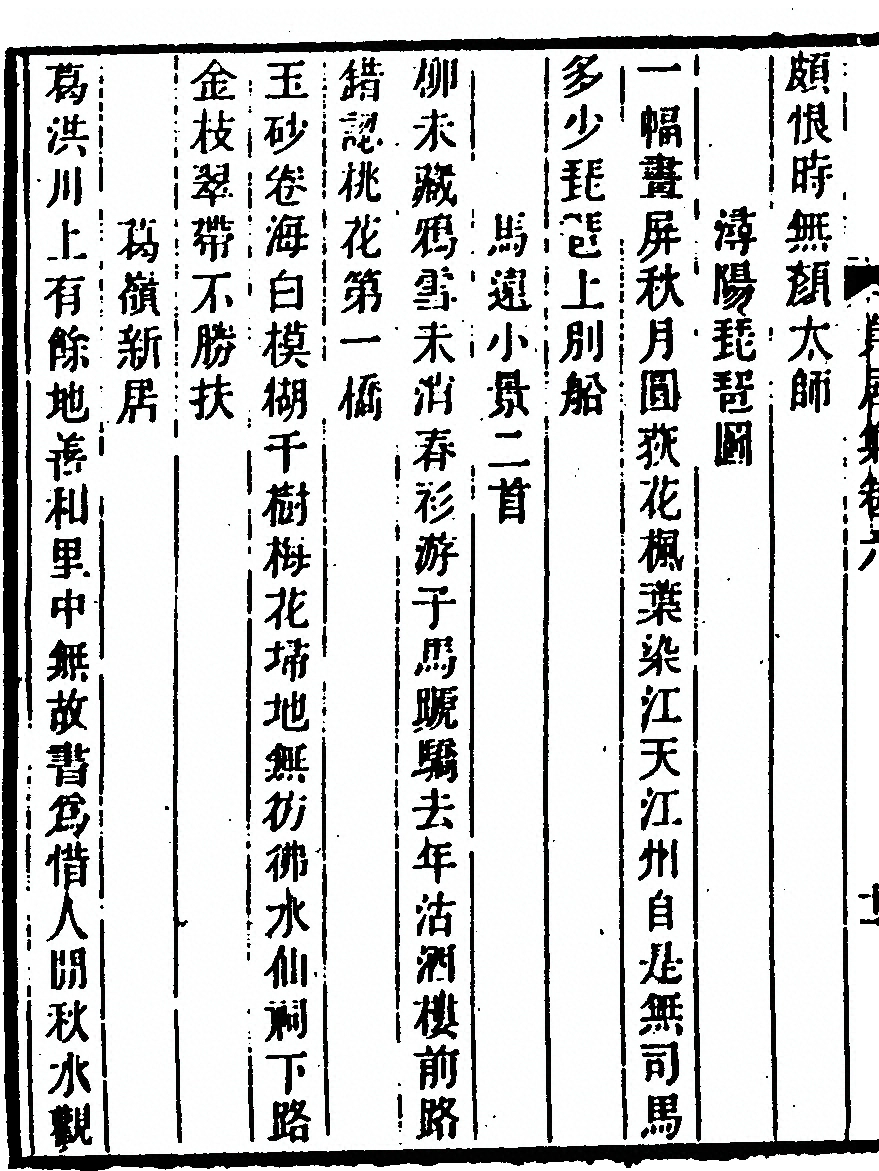 頗恨時無顏太師
潯陽琵琶圖
一幅畫屏秋月圓荻花楓葉染江天江州自是無司馬
多少琵琶上別船
馬遠小景二首
柳未藏鴉雪未消春衫游子馬蹏驕去年沽酒樓前路
錯認桃花第一橋
玉砂卷海白模糊千樹梅花埽地無彷彿水仙祠下路
金枝翠帶不勝扶
葛嶺新居
葛洪川上有餘地善和里中無故書爲借人閒秋水觀